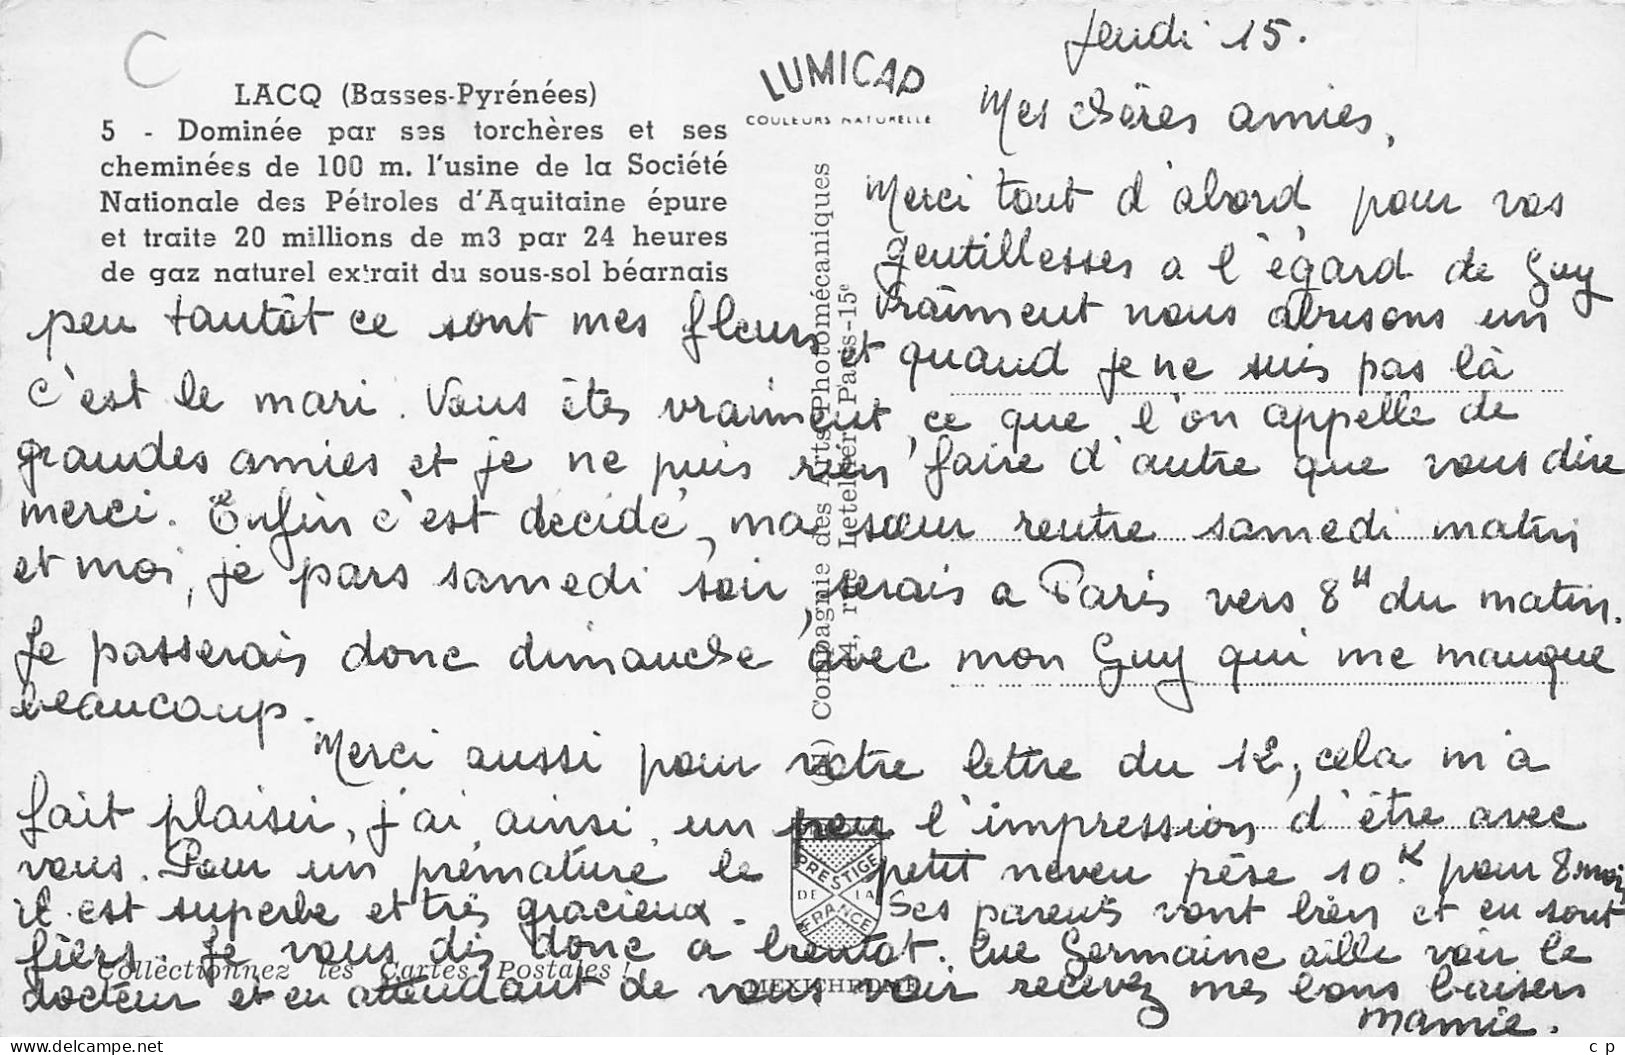 Jeudi 15.
LUMICAP
COULEURS NATURELLE
LACQ (Basses-Pyrénées)
5 - Dominée par ses torchères et ses
cheminées de 100 m. l'usine de la Société
Nationale des Pétroles d'Aquitaine épure
et traite 20 millions de m3 par 24 heures
de gaz naturel extrait du sous-sol béarnais
Mes chères amies,
Merci tout d'abord pour vos
gentillesses a l'égard de Guy
Vraiment nous abusons un
peu tantôt ce sont mes fleurs et quand je ne suis pas là
c'est le mari. Vous êtes vraiment ce que l'on appelle de
grandes amies et je ne puis rien faire d'autre que vous dire
merci. Enfin c'est décidé, ma sœur rentre samedi matin
et moi, je pars samedi soir, serais a Paris vers 8H du matin.
Je passerais donc dimanche avec mon Guy qui me manque
beaucoup.
Merci aussi pour votre lettre du 12, cela m'a
fait plaisir, j'ai ainsi un peu l'impression d'être avec
vous. Pour un prématuré le petit neveu pèse 10K pour 8 mois
il est superbe et très gracieux. Ses parents vont bien et en sont
fiers. Je vous dis donc a bientot. Que Germaine aille voir le
docteur et en attendant de vous voir recevez mes bons baisers
Mamie.
Compagnie des Arts Photomécaniques
44, rue Letellier Paris-15e
PRESTIGE
DE LA
FRANCE
Collectionnez les Cartes Postales !
MEXICHROME
www.delcampe.net
c p